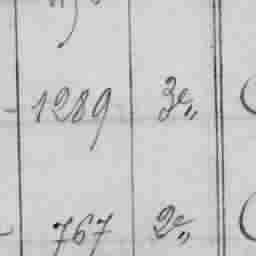 1289 3e„
767 2e„